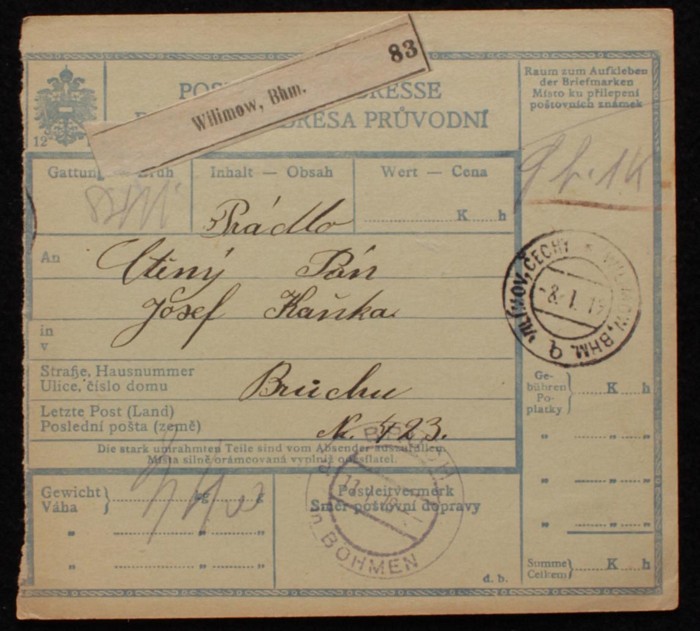 83
Wilimow, Bhm.
POS ADRESSE
DRESA PRŮVODNÍ
12
Raum zum Aufkleben
der Briefmarken
Místo ku přilepení
poštovních známek
Gattung Druh
Inhalt — Obsah
Wert — Cena
K h
Prádlo
An
Ctěný Pán
Josef Kaňka
in
v
Straße, Hausnummer
Ulice, číslo domu
Bruchu
Letzte Post (Land)
Poslední pošta (země)
No. 423.
Die stark umrahmten Teile sind vom Absender auszufüllen.
Místa silně orámcovaná vyplniž odesílatel.
VILÍMOV, ČECHY * WILIMOW, BHM.
-8. I. 19
Ge-
bühren
Po-
platky
K h
Gewicht
Váha
kg g
Postleitvermerk
Směr poštovní dopravy
BRUCH
in BÖHMEN
Summe
Celkem
K h
d. b.